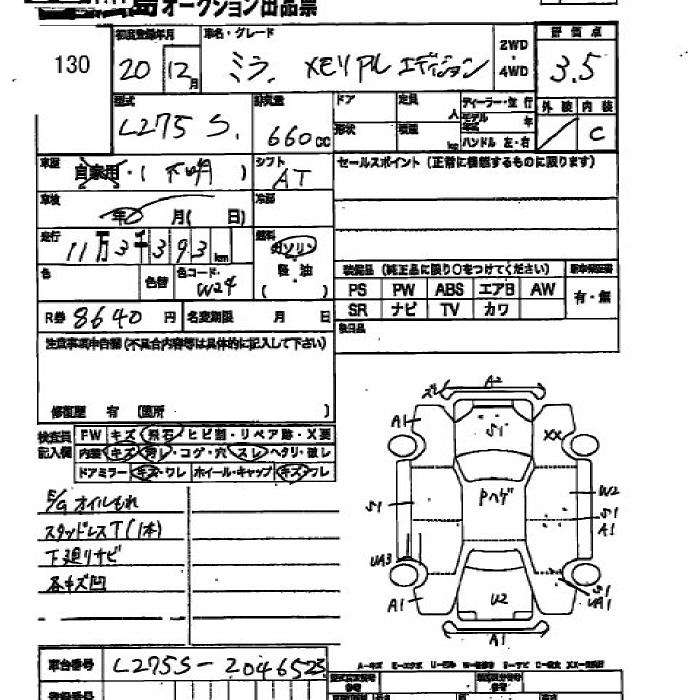 オークション出品票
130
初度登録年月
20 12月
車名・グレード
ミラ メモリアル エディション
2WD
・
4WD
評価点
3.5
型式
L275S.
排気量
660cc
ドア
定員
人
形状
積載
kg
ディーラー・並行
モデル年式 年
ハンドル 左・右
外装 内装
C
車歴
自家用・( 不明 )
シフト
AT
セールスポイント (正常に機能するものに限ります)
車検
年 月( 日)
冷房
走行
11万3千393km
燃料
ガソリン
軽油
( )
色
色替
色コード
W24
装備品 (純正品に限り○をつけてください)
PS PW ABS エアB AW
SR ナビ TV カワ
新車保証書
有・無
R券 8640円
名変期限 月 日
後日品
注意事項申告欄 (不具合内容等は具体的に記入して下さい)
修復歴 有 (箇所 )
検査員記入欄
FW キズ・飛石・ヒビ割・リペア跡・X要
内装 キズ・汚レ・コゲ・穴・スレ・ヘタリ・破レ
ドアミラー キズ・ワレ ホイール・キャップ キズ・ワレ
E/gオイルもれ
スタッドレスT(1本)
下廻りサビ
各キズ凹
A2
A1
S1
XX
S1
Pハゲ
W2
S1
A1
UA3
A1
U2
S1
UA1
A1
車台番号 L275S-2046523
A-キズ